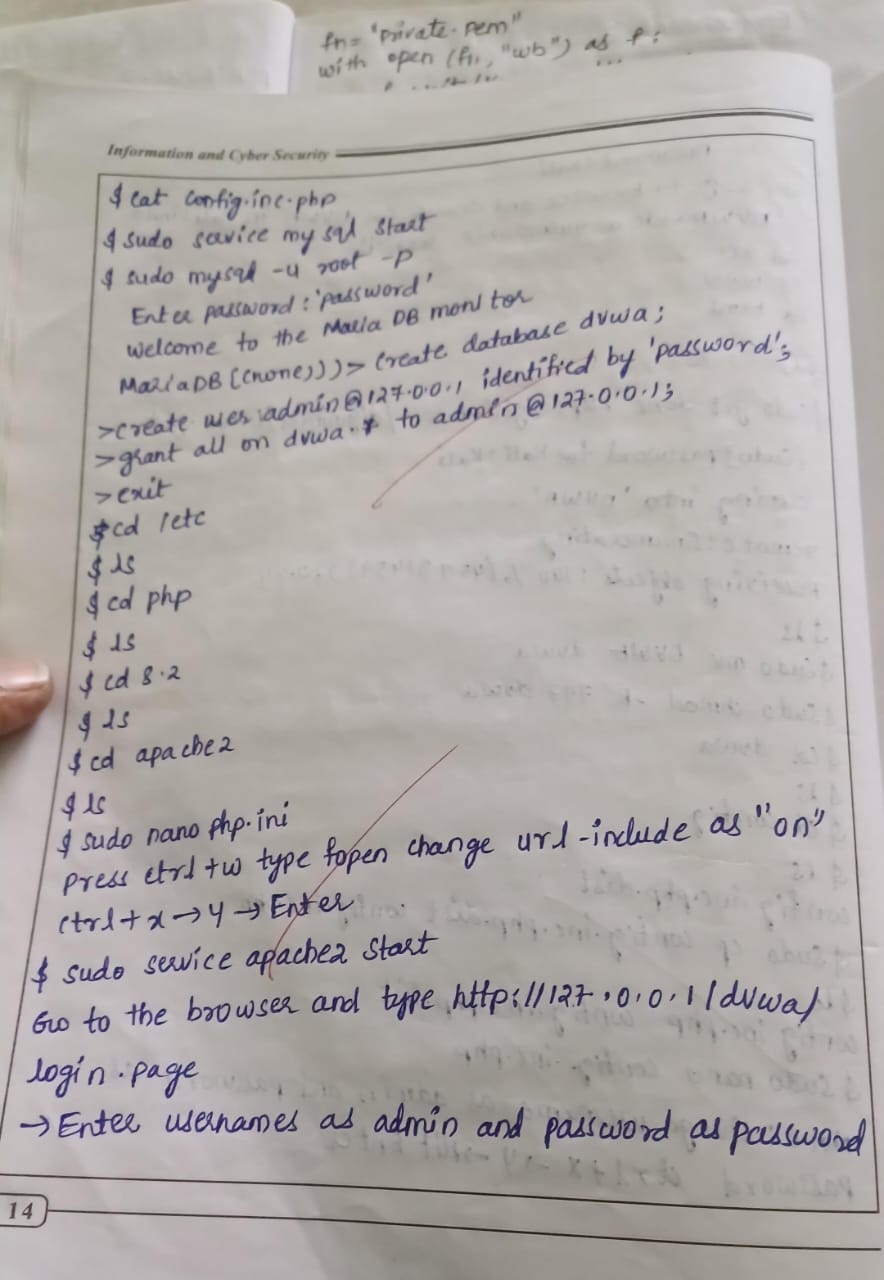 fn= "private.pem"
with open (fn, "wb") as f:
Information and Cyber Security
$ cat config.inc.php
$ sudo service my sql start
$ sudo mysql -u root -p
Enter password : 'password'
Welcome to the Maria DB monitor
MariaDB [(none)]> Create database dvwa ;
>create user admin@127.0.0.1 identified by 'password';
>grant all on dvwa.* to admin@127.0.0.1;
>exit
$cd /etc
$ ls
$ cd php
$ ls
$ cd 8.2
$ ls
$ cd apache2
$ ls
$ sudo nano php.ini
press ctrl +w type fopen change url-include as "on"
ctrl+x→y→Enter
$ sudo service apache2 start
Go to the browser and type http://127.0.0.1/dvwa/
login.page
→Enter usernames as admin and password as password
14